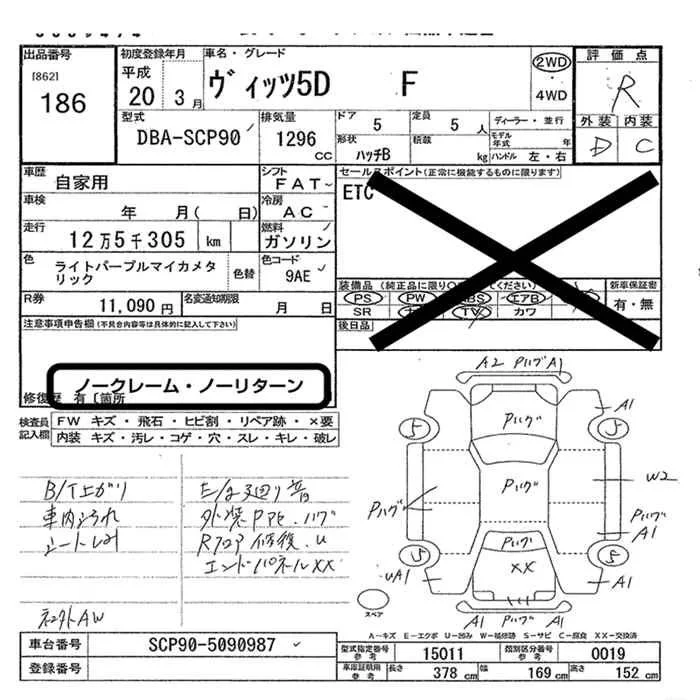 出品番号
[862]
186
初度登録年月
平成
20 3月
車名・グレード
ヴィッツ5D F
2WD
4WD
評価点
R
外装 内装
D C
型式
DBA-SCP90
排気量
1296
CC
ドア
5
定員
5 人
ディーラー・並行
形状
ハッチB
積載
kg
モデル年式 年
ハンドル 左・右
車歴
自家用
シフト
FAT
車検
年 月( 日)
冷房
AC
走行
12万5千305 km
燃料
ガソリン
色
ライトパープルマイカメタリック
色替
色コード
9AE
R券
11,090 円
名変通知期限
月 日
セールスポイント(正常に機能するものに限ります)
ETC
装備品
PS PW ABS エアB
SR TV カワ
新車保証書
有・無
後日品
注意事項申告欄(不具合内容等は具体的に記入して下さい)
ノークレーム・ノーリターン
修復歴 有〔箇所
検査員記入欄
FW キズ・飛石・ヒビ割・リペア跡・×要
内装 キズ・汚レ・コゲ・穴・スレ・キレ・破レ
B/T上がり
車内よごれ
シートしみ
ネンオトAW
E/g廻り音
外装PPE.ハゲ
Rフロア修復.U
エンドパネルXX
A2 Pハゲ A1
Pハゲ
A1
5
5
Pハゲ
Pハゲ
W2
Pハゲ
A1
Pハゲ
XX
5
5
UA1
A1
A1 Pハゲ A1
スペア
A-キズ E-エクボ U-凹み W-補修跡 S-サビ C-腐食 XX-交換済
車台番号
SCP90-5090987
登録番号
型式指定番号
参考
15011
類別区分番号
参考
0019
車庫証明用
参考
長さ
378 cm
幅
169 cm
高さ
152 cm